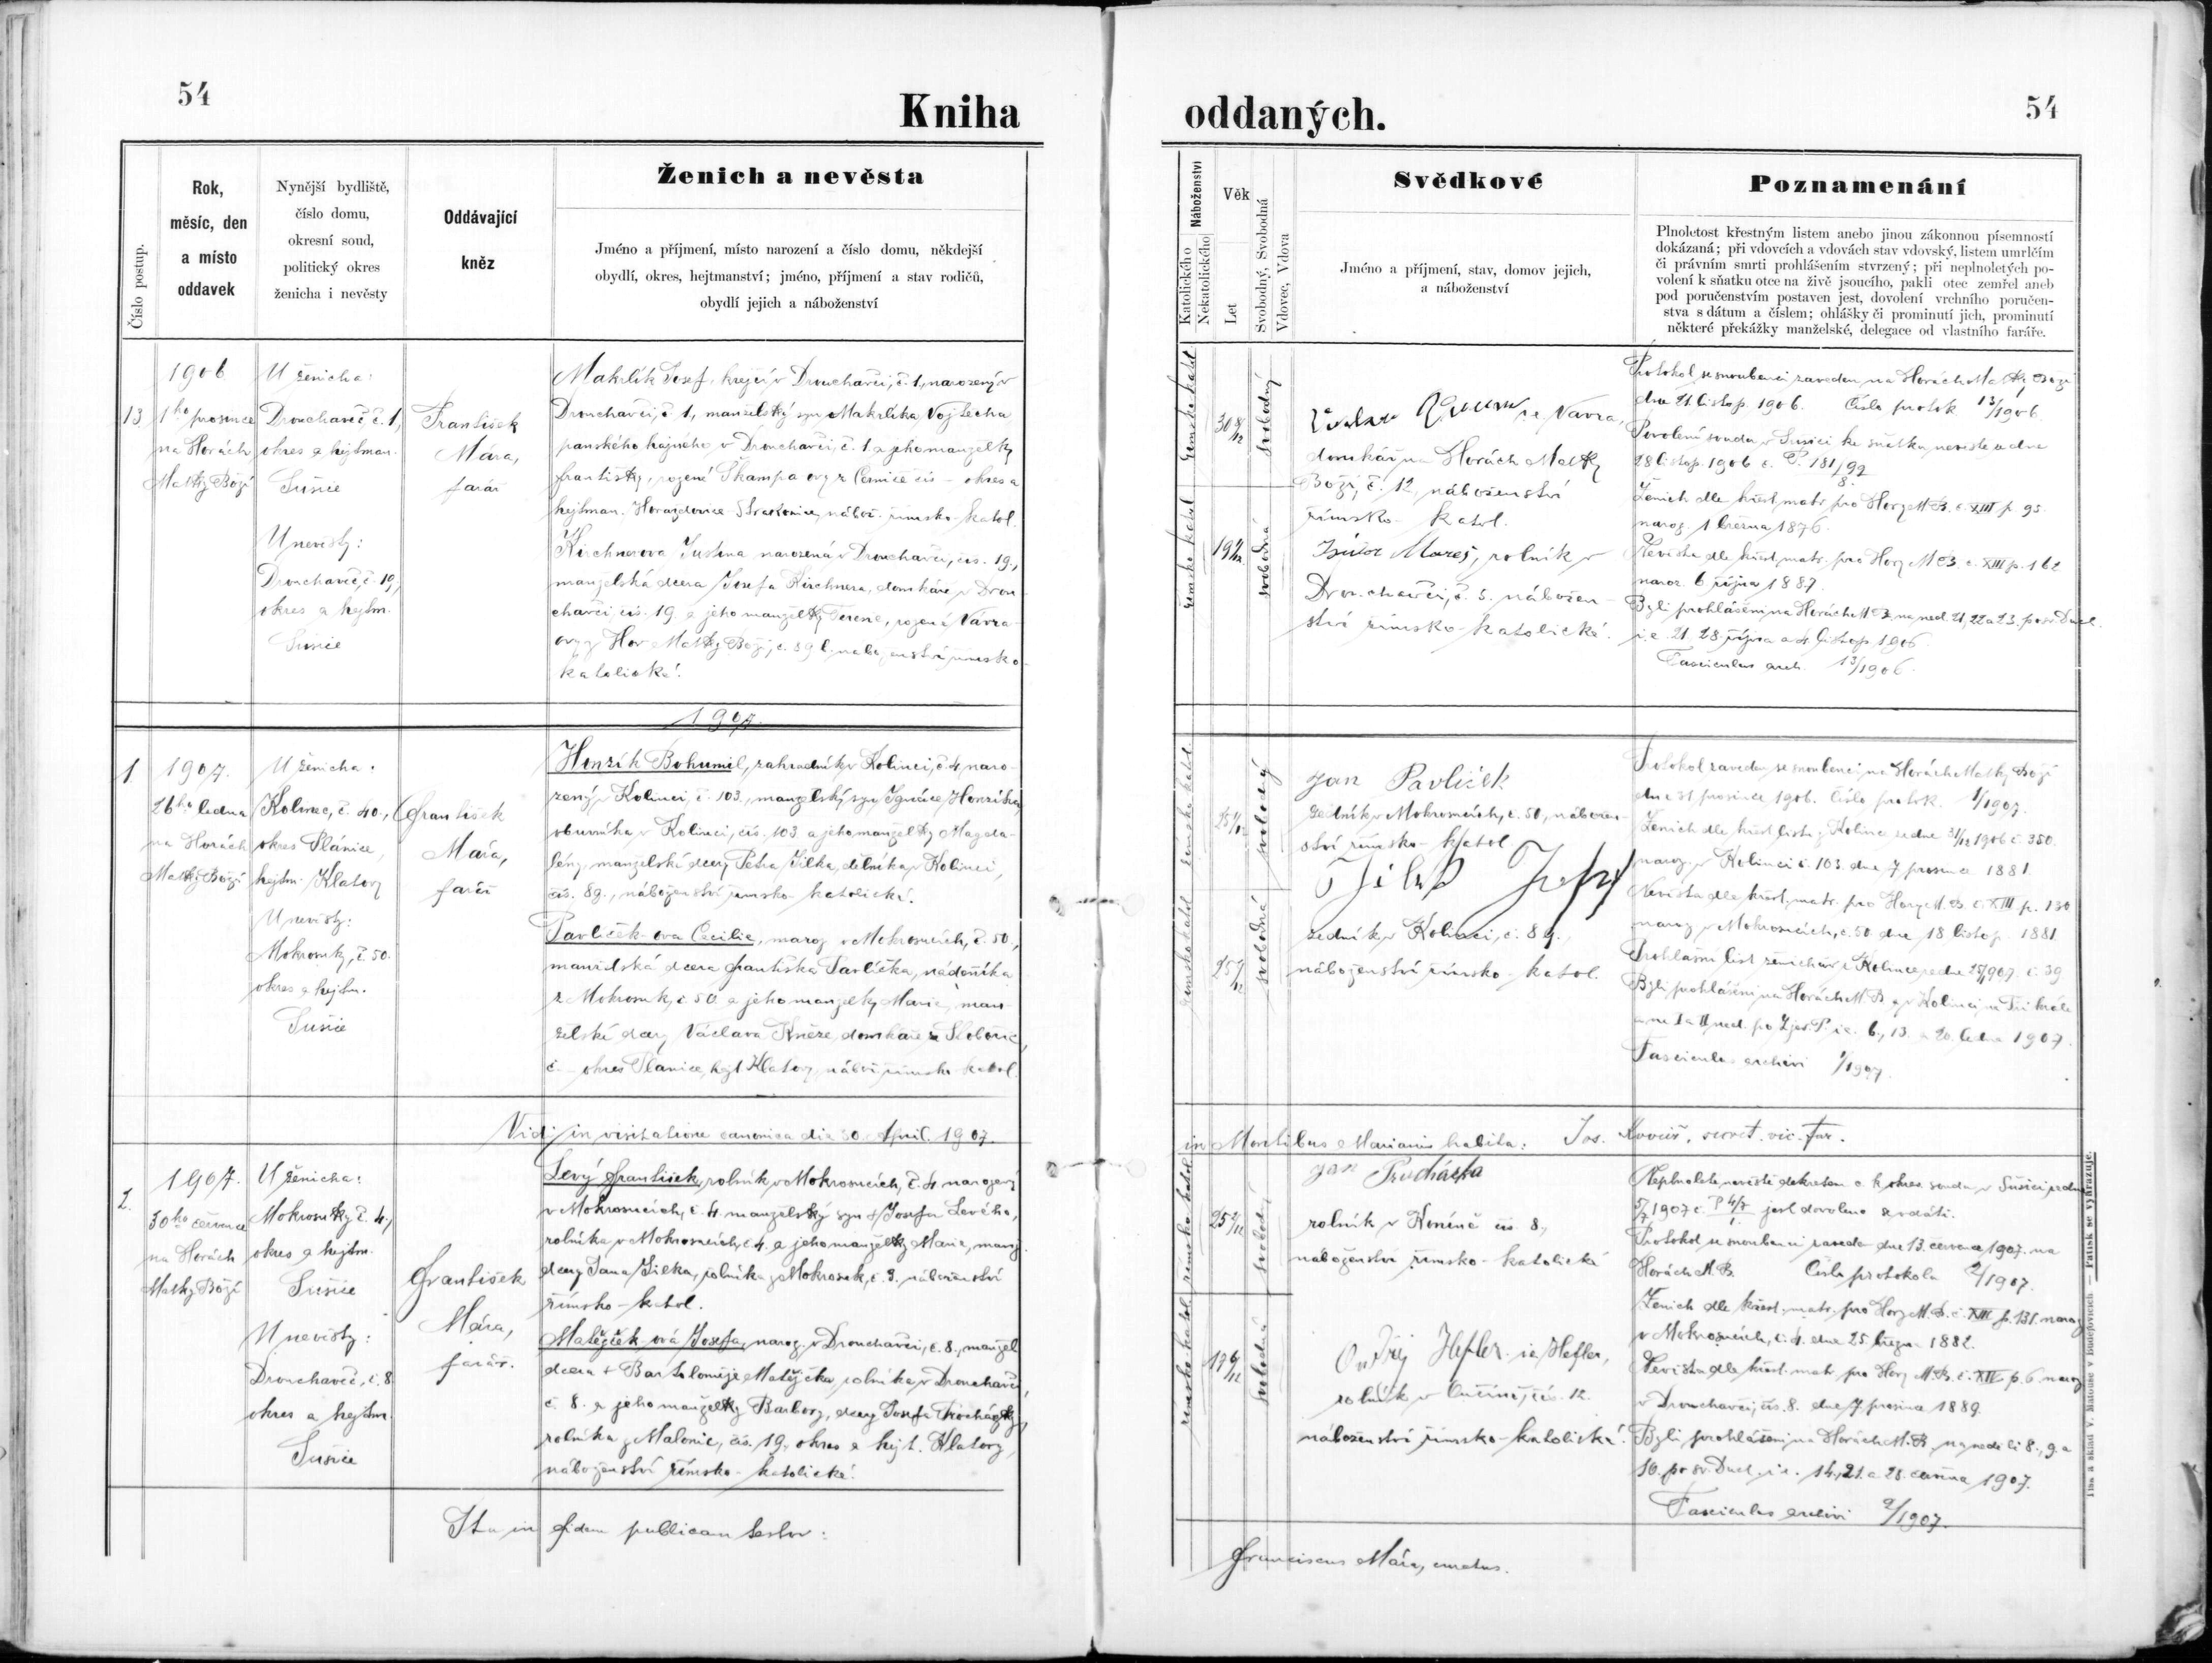 54
Kniha
Číslo postup.
Rok,
měsíc, den
a místo
oddavek
Nynější bydliště,
číslo domu,
okresní soud,
politický okres
ženicha i nevěsty
Oddávající
kněz
Ženich a nevěsta
Jméno a příjmení, místo narození a číslo domu, někdejší
obydlí, okres, hejtmanství; jméno, příjmení a stav rodičů,
obydlí jejich a náboženství
13.
1906
1ho prosince
na Horách
Matky Boží
U ženicha:
Drouchaveč č. 1,
okres a hejtman.
Sušice
U nevěsty:
Drouchaveč, č. 19,
okres a hejtm.
Sušice
František
Mára,
farář
Makrlík Josef, krejčí v Drouchavči, č. 1, narozený v
Drouchavči, č. 1, manželský syn Makrlíka Vojtěcha
panského hajného v Drouchavči, č. 1. a jeho manželky
Františky, rozené Škampa
hejtman. Horažďovice-Strakonice, nábož. římsko-katol.
Kirchnerova Justina narozená v Drouchavči, čís. 19.,
manželská dcera Josefa Kirchnera, domkáře v Drou-
chavči čís. 19. a jeho manželky Terezie, rozená Vávra-
Hor Matky Boží, č. 89 náboženství římsko-
katolické.
1907.
1.
1907.
26ho ledna
na Horách
Matky Boží
U ženicha:
Kolinec, č. 40.,
okres Plánice,
hejtm. Klatovy
U nevěsty:
Mokrosuky, č. 50.
okres a hejtm.
Sušice
František
Mára,
farář
Honzík Bohumil, zahradník v Kolinci, č. 4, naro-
zený v Kolinci, č. 103., manželský syn Ignáce Honzíka,
obuvníka v Kolinci, čís. 103 a jeho manželky Magda-
lény, manželské dcery Petra Jílka, dělníka v Kolinci,
čís. 89., náboženství římsko-katolické.
Pavlíček-ova Cecilie, naroz. v Mokrosucích, č. 50.,
manželská dcera Františka Pavlíčka, nádeníka
z Mokrosuk, č. 50 a jeho manželky Marie, man-
želské dcery Václava Kněze, domkáře
č. – okres Plánice, hejt. Klatovy, nábož. římsko-katol.
Vidi in visitatione canonica die 30. April. 1907.
2.
1907.
30ho července
na Horách
Matky Boží
U ženicha:
Mokrosuky č. 4.,
okres a hejtm.
Sušice
U nevěsty:
Drouchaveč, č. 8
okres a hejtm.
Sušice
František
Mára,
farář.
Levý František, rolník v Mokrosucích, č. 4. narozený
v Mokrosucích, č. 4. manželský syn † Josefa Levého,
rolníka v Mokrosucích, č. 4. a jeho manželky Marie, manž.
dcery Jana Jílka, rolníka z Mokrosuk, č. 3. náboženství
římsko-katol.
Matějček-ová Josefa, naroz. v Drouchavči, č. 8., manžel.
dcera † Bartoloměje Matějčka, rolníka v Drouchavči,
č. 8. a jeho manželky Barbory, dcery Josefa Procházky,
rolníka z Malonic, čís. 19, okres a hejt. Klatovy,
náboženství římsko-katolické.
Ita in fidem publicam testor:
54
oddaných.
Náboženství
Katolického
Nekatolického
Věk
Let
Svobodný, Svobodná
Vdovec, Vdova
Svědkové
Jméno a příjmení, stav, domov jejich,
a náboženství
Poznamenání
Plnoletost křestným listem anebo jinou zákonnou písemností
dokázaná; při vdovcích a vdovách stav vdovský, listem umrlčím
či právním smrti prohlášením stvrzený; při neplnoletých po-
volení k sňatku otce na živě jsoucího, pakli otec zemřel aneb
pod poručenstvím postaven jest, dovolení vrchního poručen-
stva s dátum a číslem; ohlášky či prominutí jich, prominutí
některé překážky manželské, delegace od vlastního faráře.
římsko katol
30 8/12
svobodný
římsko katol
svobodná
Vávra,
domkář na Horách Matky
Boží, č. 12, náboženství
římsko-katol.
Mareš, rolník v
Drouchavči, č. 5. nábožen-
ství římsko-katolické.
Protokol se snoubenci zaveden na Horách Matky Boží
dne 21. listop. 1906. Číslo protok. 13/1906.
Povolení soudu v Sušici ke sňatku nevěsty
28 listop. 1906 č. P. 181/99
8.
Ženich dle křest. matr. pro Hory M. B. č. XIII p. 95.
naroz. 1 března 1876.
Nevěsta dle křest. matr. pro Hory M B č. XIII p. 162
naroz. 6 října 1887.
Byli prohlášeni na Horách M. B. na ned. 21, 22 a 23. po sv. Duch.
i. e. 21 28 října a 4. listop. 1906.
Fasciculus arch. 13/1906.
římsko katol
svobodný
římsko katol
svobodná
Jan Pavlíček
zedník v Mokrosucích, č. 50, nábožen-
ství římsko-katol
Jílek Josef
zedník v Kolinci, č. 89.,
náboženství římsko-katol.
Protokol zaveden se snoubenci na Horách Matky Boží
dne 31 prosince 1906. Číslo protok. 1/1907.
Ženich dle křest. listu z Kolince ze dne 31/12 1906 č. 350.
naroz. v Kolinci č. 103. dne 7 prosince 1881.
Nevěsta dle křest. matr. pro Hory M. B. č. XIII p. 130
naroz. v Mokrosucích, č. 50 dne 18 listop. 1881.
Prohlašní list ženichův z Kolince ze dne 25/1 1907. č. 39
Byli prohlášeni na Horách M. B. a v Kolinci na Tři krále
a na I a II ned. po Zjev. P. i. e. 6., 13. a 20. ledna 1907.
Fasciculus archivi 1/1907.
in Montibus Marianis habita: Jos. secret. vic. for.
římsko katol
25 4/12
svobodný
římsko katol
17 6/12
svobodná
Jan Procházka
rolník v čís. 8.,
náboženství římsko-katolické
Ondřej Hefler i. e. Hefler,
rolník v čís. 12.
náboženství římsko-katolické.
Neplnoleté nevěstě dekretem c. k. okres. soudu v Sušici ze dne
5/7 1907 č. jest dovoleno se vdáti.
Protokol se snoubenci zaveden dne 13. července 1907. na
Horách M. B. Číslo protokolu 2/1907.
Ženich dle křest. matr. pro Hory M. B. č. XIII p. 131. naroz.
v Mokrosucích, č. 4. dne 25. března 1882.
Nevěsta dle křest. matr. pro Hory M. B. č. XIV p. 6 naroz.
v Drouchavči, čís. 8. dne 7 prosince 1889.
Byli prohlášeni na Horách M. B. na neděli 8., 9. a
10. po sv. Duch. i. e. 14., 21. a 28. července 1907.
Fasciculus archivi 2/1907.
Franciscus Mára, curatus.
Tisk a sklad V. Matouše v Budějovicích. — Patisk se vyhrazuje.